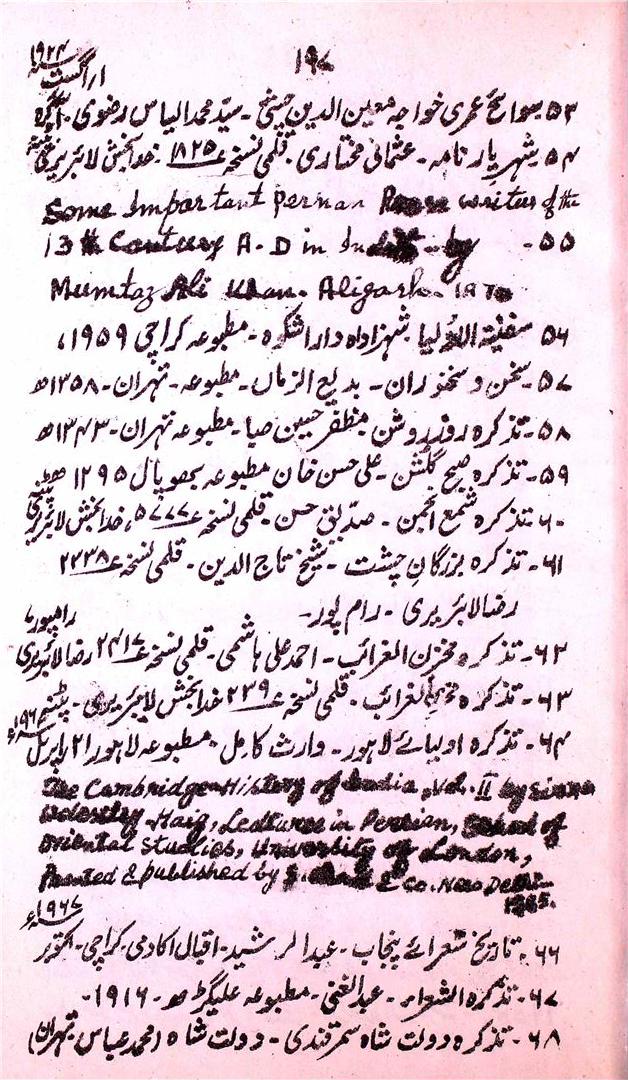 ۱۹۷
۱۹۲۴ء
۱/ اگست
۵۳۔ سوانح عمری خواجہ معین الدین چشتی۔ سیّد محمد الیاس رضوی۔
۵۴۔ شہریار نامہ۔ عثمانی مختاری۔ قلمی نسخہ ۱۸۲۵ خدا بخش لائبریری پٹنہ
Some Important Persian Prose writers of the
۵۵۔ 13th Century A.D in India - by
Mumtaz Ali Khan. Aligarh. 1970
۵۶ سفینۃ الاولیا۔ شہزادہ دارا شکوہ۔ مطبوعہ کراچی ۱۹۵۹ء
۵۷۔ سخن و سخنوران۔ بدیع الزماں۔ مطبوعہ۔ تہران۔ ۱۳۵۸ھ
۵۸۔ تذکرہ روز روشن۔ مظفر حسین صبا۔ مطبوعہ تہران۔ ۱۳۴۳ھ
۵۹۔ تذکرہ صبح گلشن۔ علی حسن خان مطبوعہ بھوپال ۱۲۹۵ھ
۶۰۔ تذکرہ شمع انجمن۔ صدیق حسن۔ قلمی نسخہ ۵۷۷۷، خدا بخش لائبریری پٹنہ
۶۱۔ تذکرہ بزرگانِ چشت۔ شیخ تاج الدین۔ قلمی نسخہ ۲۲۳۸
رضا لائبریری۔ رام پور۔
۶۲۔ تذکرہ مخزن الغرائب۔ احمد علی ہاشمی۔ قلمی نسخہ ۲۴۱۷ رضا لائبریری رامپور
۶۳۔ تذکرہ الغرائب۔ قلمی نسخہ ۲۳۹ خدا بخش لائبریری۔ پٹنہ
۶۴۔ تذکرہ اولیائے لاہور۔ وارث کامل۔ مطبوعہ لاہور ۲۱/ اپریل
The Cambridge History of India, Vol. II by
Wolseley Haig, Lecturer in Persian, School of
Oriental Studies, University of London,
Printed & published by S. Chand & Co. New Delhi
۱۹۶۷ء
۶۶۔ تاریخ شعرائے پنجاب۔ عبدالرشید۔ اقبال اکادمی۔ کراچی۔ اکتوبر
۶۷۔ تذکرۃ الشعراء۔ عبدالغنی۔ مطبوعہ علیگڑھ۔ ۱۹۱۶۔
۶۸۔ تذکرہ دولت شاہ سمرقندی۔ دولت شاہ (محمد عباس۔ تہران)